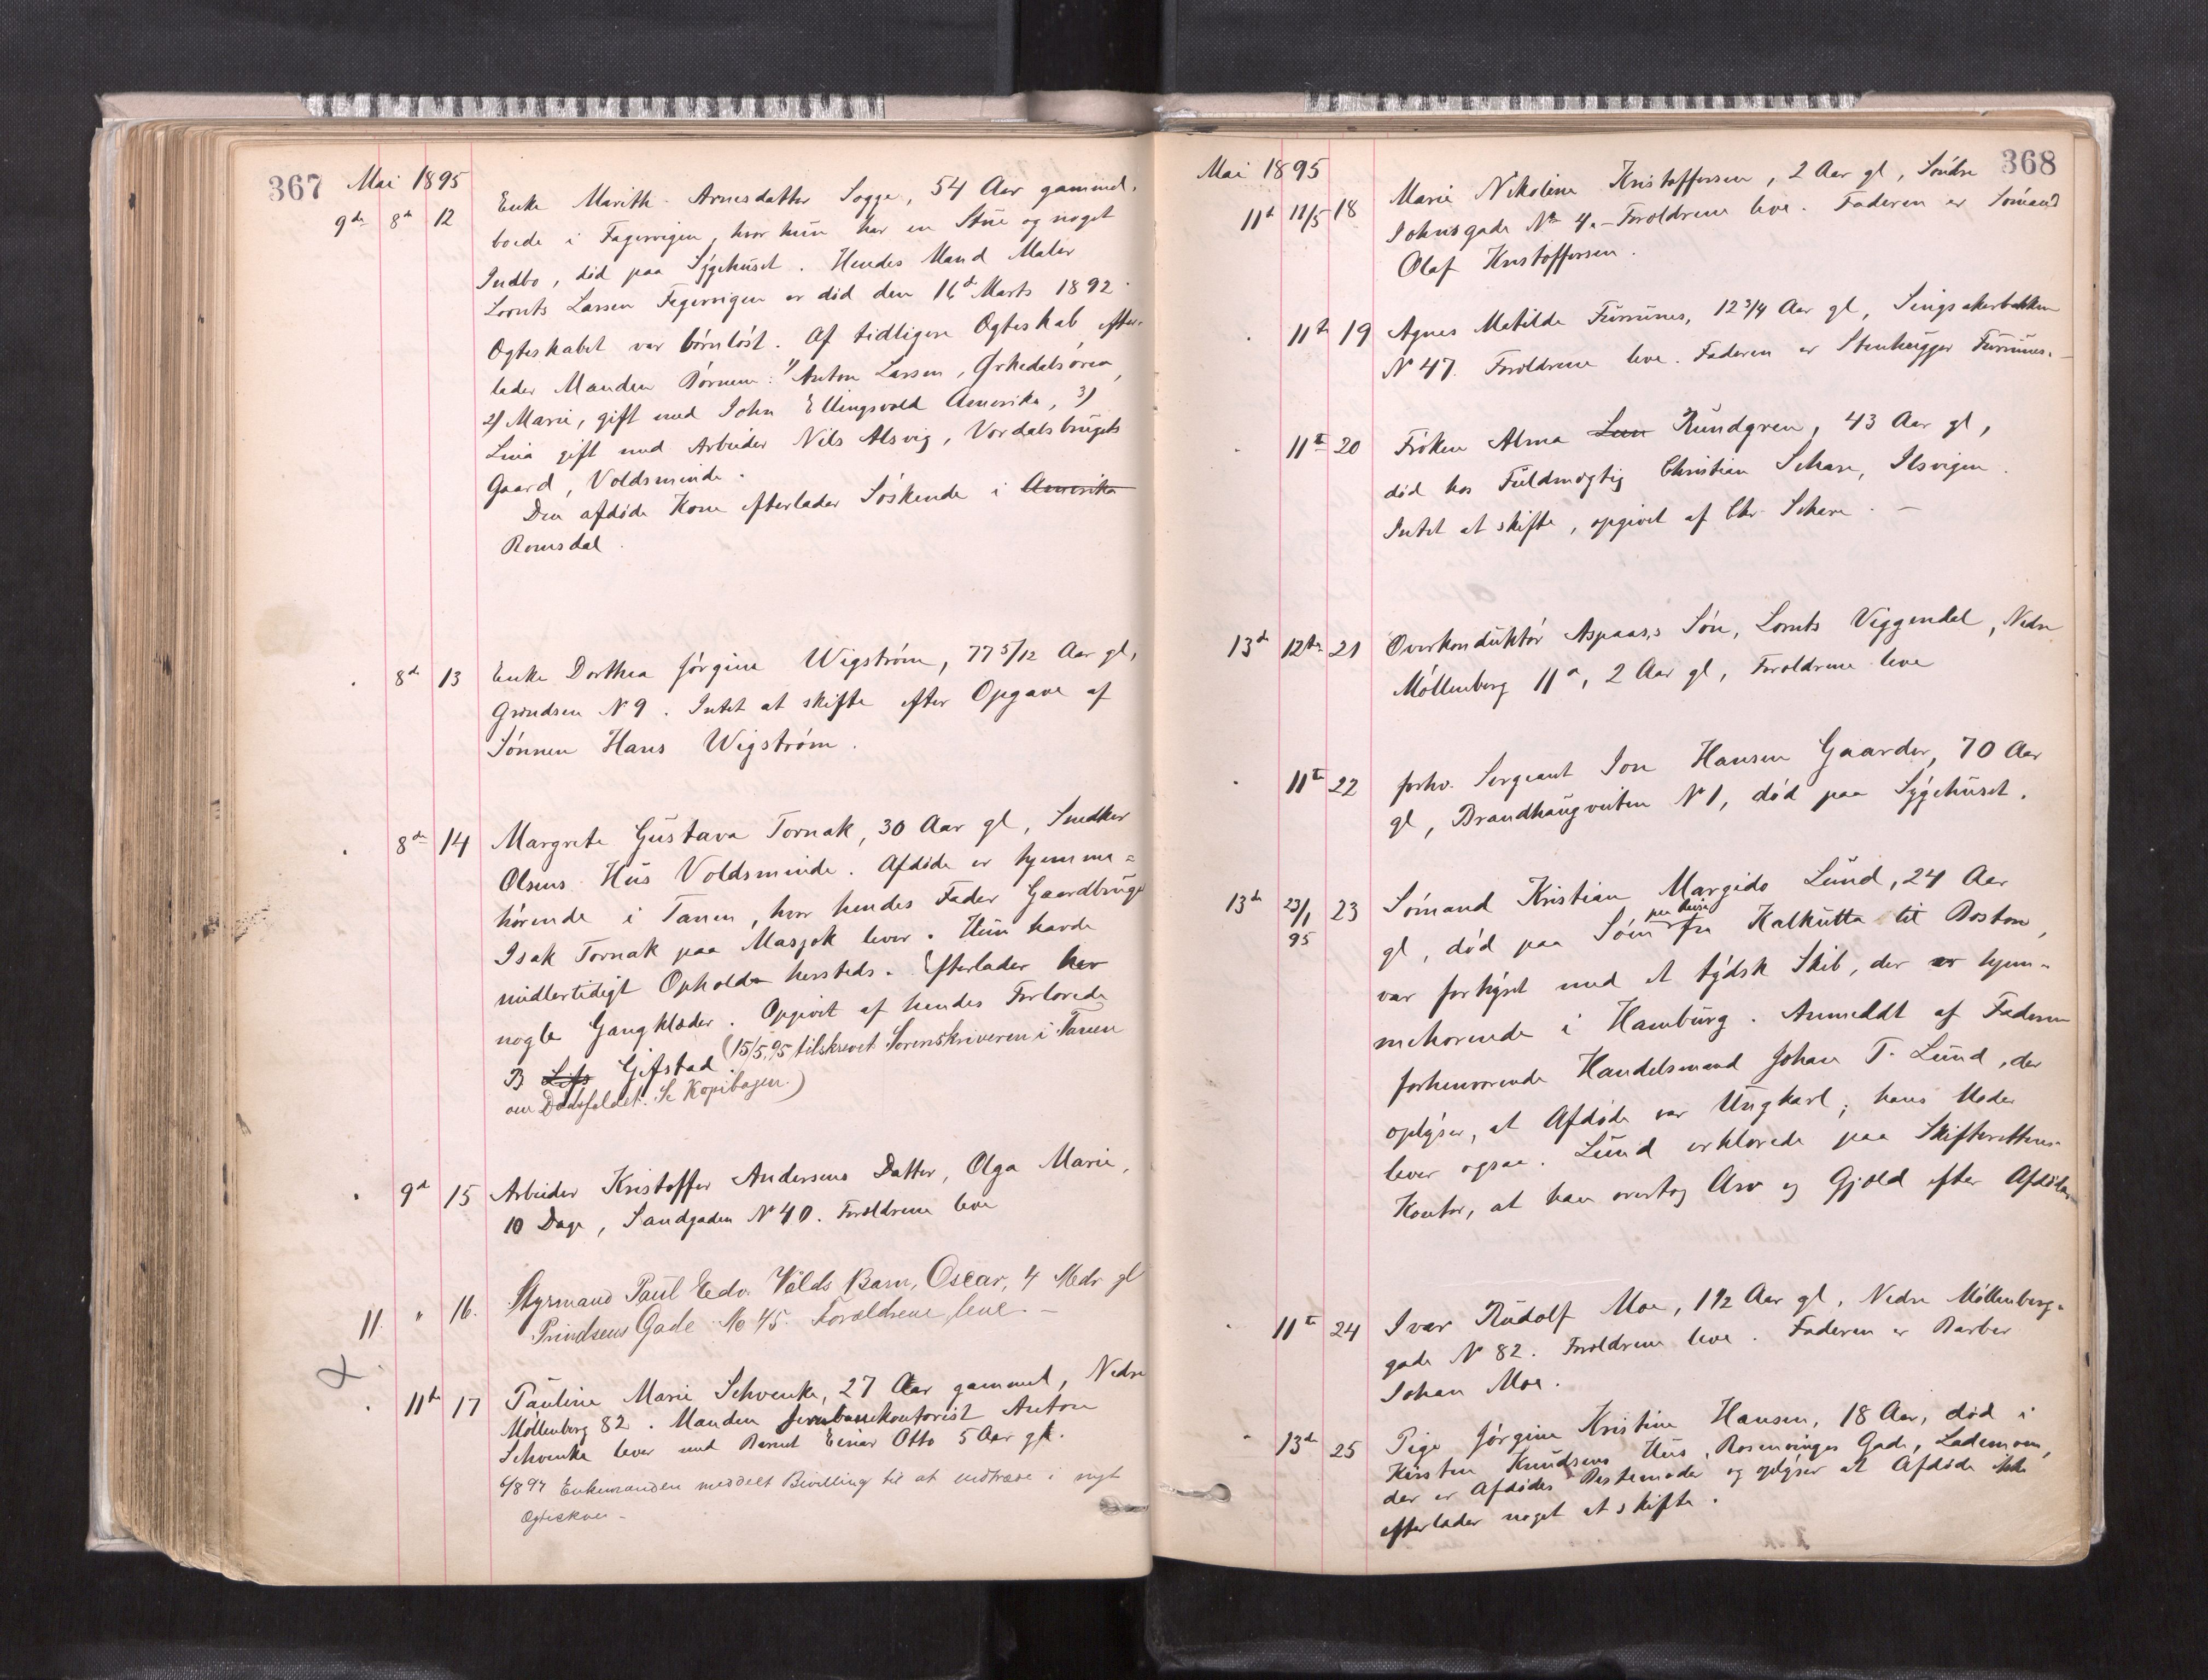 367 Mai 1895
9de 8de 12 Enke Marith Arnesdatter Sogge, 54 Aar gammel,
boede i Fagervigen, hvor hun har en Stue og noget
Indbo, död paa Sygehuset. Hendes Mand Maler
Lornts Larsen Fagervigen er död den 16d Marts 1892.
Ogteskabet var börnlöst. Af tidligere Ogteskab efter-
lader Manden Börnene: 1) Anton Larsen, Orkedalsören,
2) Marie, gift med John Ellingsvold Amerika, 3)
Lina gift med Arbeider Nils Alsvig, Vordalsbrugets
Gaard, Voldsminde.
Den afdöde Kone efterlader Söskende i Amerika
Romsdal.
8de 13 Enke Dorthea Jörgine Wigström, 77 5/12 Aar gl,
Grindsen N 9. Intet at skifte efter Opgave af
Sönnen Hans Wigström.
8de 14 Margrete Gustava Tornak, 30 Aar gl, Snedker
Olsens Hus Voldsminde. Afdöde er hjemme=
hörende i Tanen, hvor hendes Fader Gaardbruger
Isak Tornak paa Masjok lever. Hun havde
midlertidigt Ophold hersteds. Efterlader kun
nogle Gangklæder. Opgivet af hendes Forlovede
B Lifs Gifstad. (15/5 95 tilskrevet Sorenskriveren i Tanen
om Dödsfaldet. Se Kopibogen.)
9d 15 Arbeider Kristoffer Andersens Datter, Olga Marie,
10 Dage, Sandgaden N 40. Foroldrene leve
11. " 16. Styrmand Paul Edv. Volds Barn, Oscar, 4 Mdr gl
Prindsens Gade No 45. Forældrene leve. —
11te 17 Pauline Marie Schvenke, 27 Aar gammel, Nedre
Möllenberg 82. Manden Jernbanekontorist Anton
Schvenke lever med Barnet Einar Otto 5 Aar gl.
6/8 97 Enkemanden meddelt Bevilling til at indtræde i nyt
Ægteskab.
368
Mai 1895
11te 11/5 18 Marie Nikoline Kristoffersen, 2 Aar gl, Söndre
Johnsgade No 4. — Foroldrene leve. Faderen er Sömand
Olaf Kristoffersen.
11te 19 Agnes Matilde Furunes, 12 3/4 Aar gl, Singsakerbakken
N 47. Foroldrene leve. Faderen er Stenhugger Furunes. —
11te 20 Fröken Alma Lun Rundgren, 43 Aar gl,
död hos Fuldmogtig Christian Schare, Ilsvigen.
Intet at skifte, opgivet af Chr. Schare. —
13d 12te 21 Overkonduktör Aspaas,s Sön, Lornts Viggendal, Nedre
Möllenberg 11a, 2 Aar gl, Foroldrene leve
11te 22 forhv. Sergeant Jon Hansen Gaarder, 70 Aar
gl, Brandhaugveiten N 1, död paa Sygehuset.
13de 23/1 95 23 Sömand Kristian Margido Lund, 24 Aar
gl, död paa Söen paa Reise fra Kalkutta til Boston,
var forhyret med et tydsk Skib, der er hjem-
mehorende i Hamburg. Anmeldt af Faderen
forhenvorende Handelsmand Johan T. Lund, der
oplyser, at Afdöde var Ungkarl; hans Moder
lever ogsaa. Lund erklorede paa Skifterettens
Kontor, at han overtog Arv og Gjold efter Afdöde.
11te 24 Ivar Rudolf Moe, 1 1/2 Aar gl, Nedre Möllenberg-
gade N 82. Foroldrene leve. Faderen er Barber
Johan Moe.
13de 25 Pige Jörgine Kristine Hansen, 18 Aar, död i
Kirsten Knudsens Hus, Rosenvinges Gade, Lademoen,
der er Afdödes Bestemoder og oplyser at Afdöde ikke
efterlader noget at skifte.